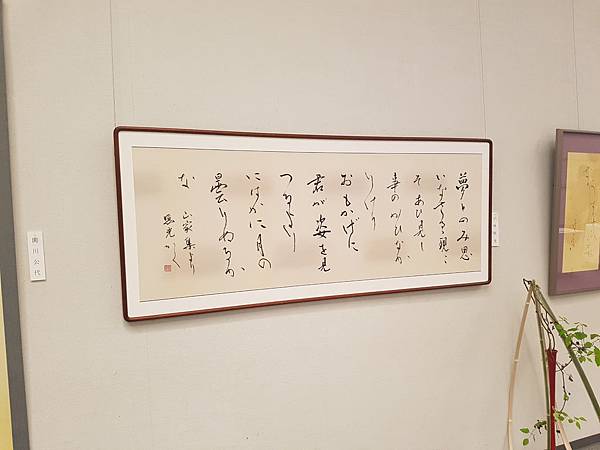 夢とのみ思
いなさるる現こ
そあひ見し
事のかひなか
りけり
おもかげに
君が姿を見
つるより
にはかに月の
曇りぬるか
な
山家集より
川公代